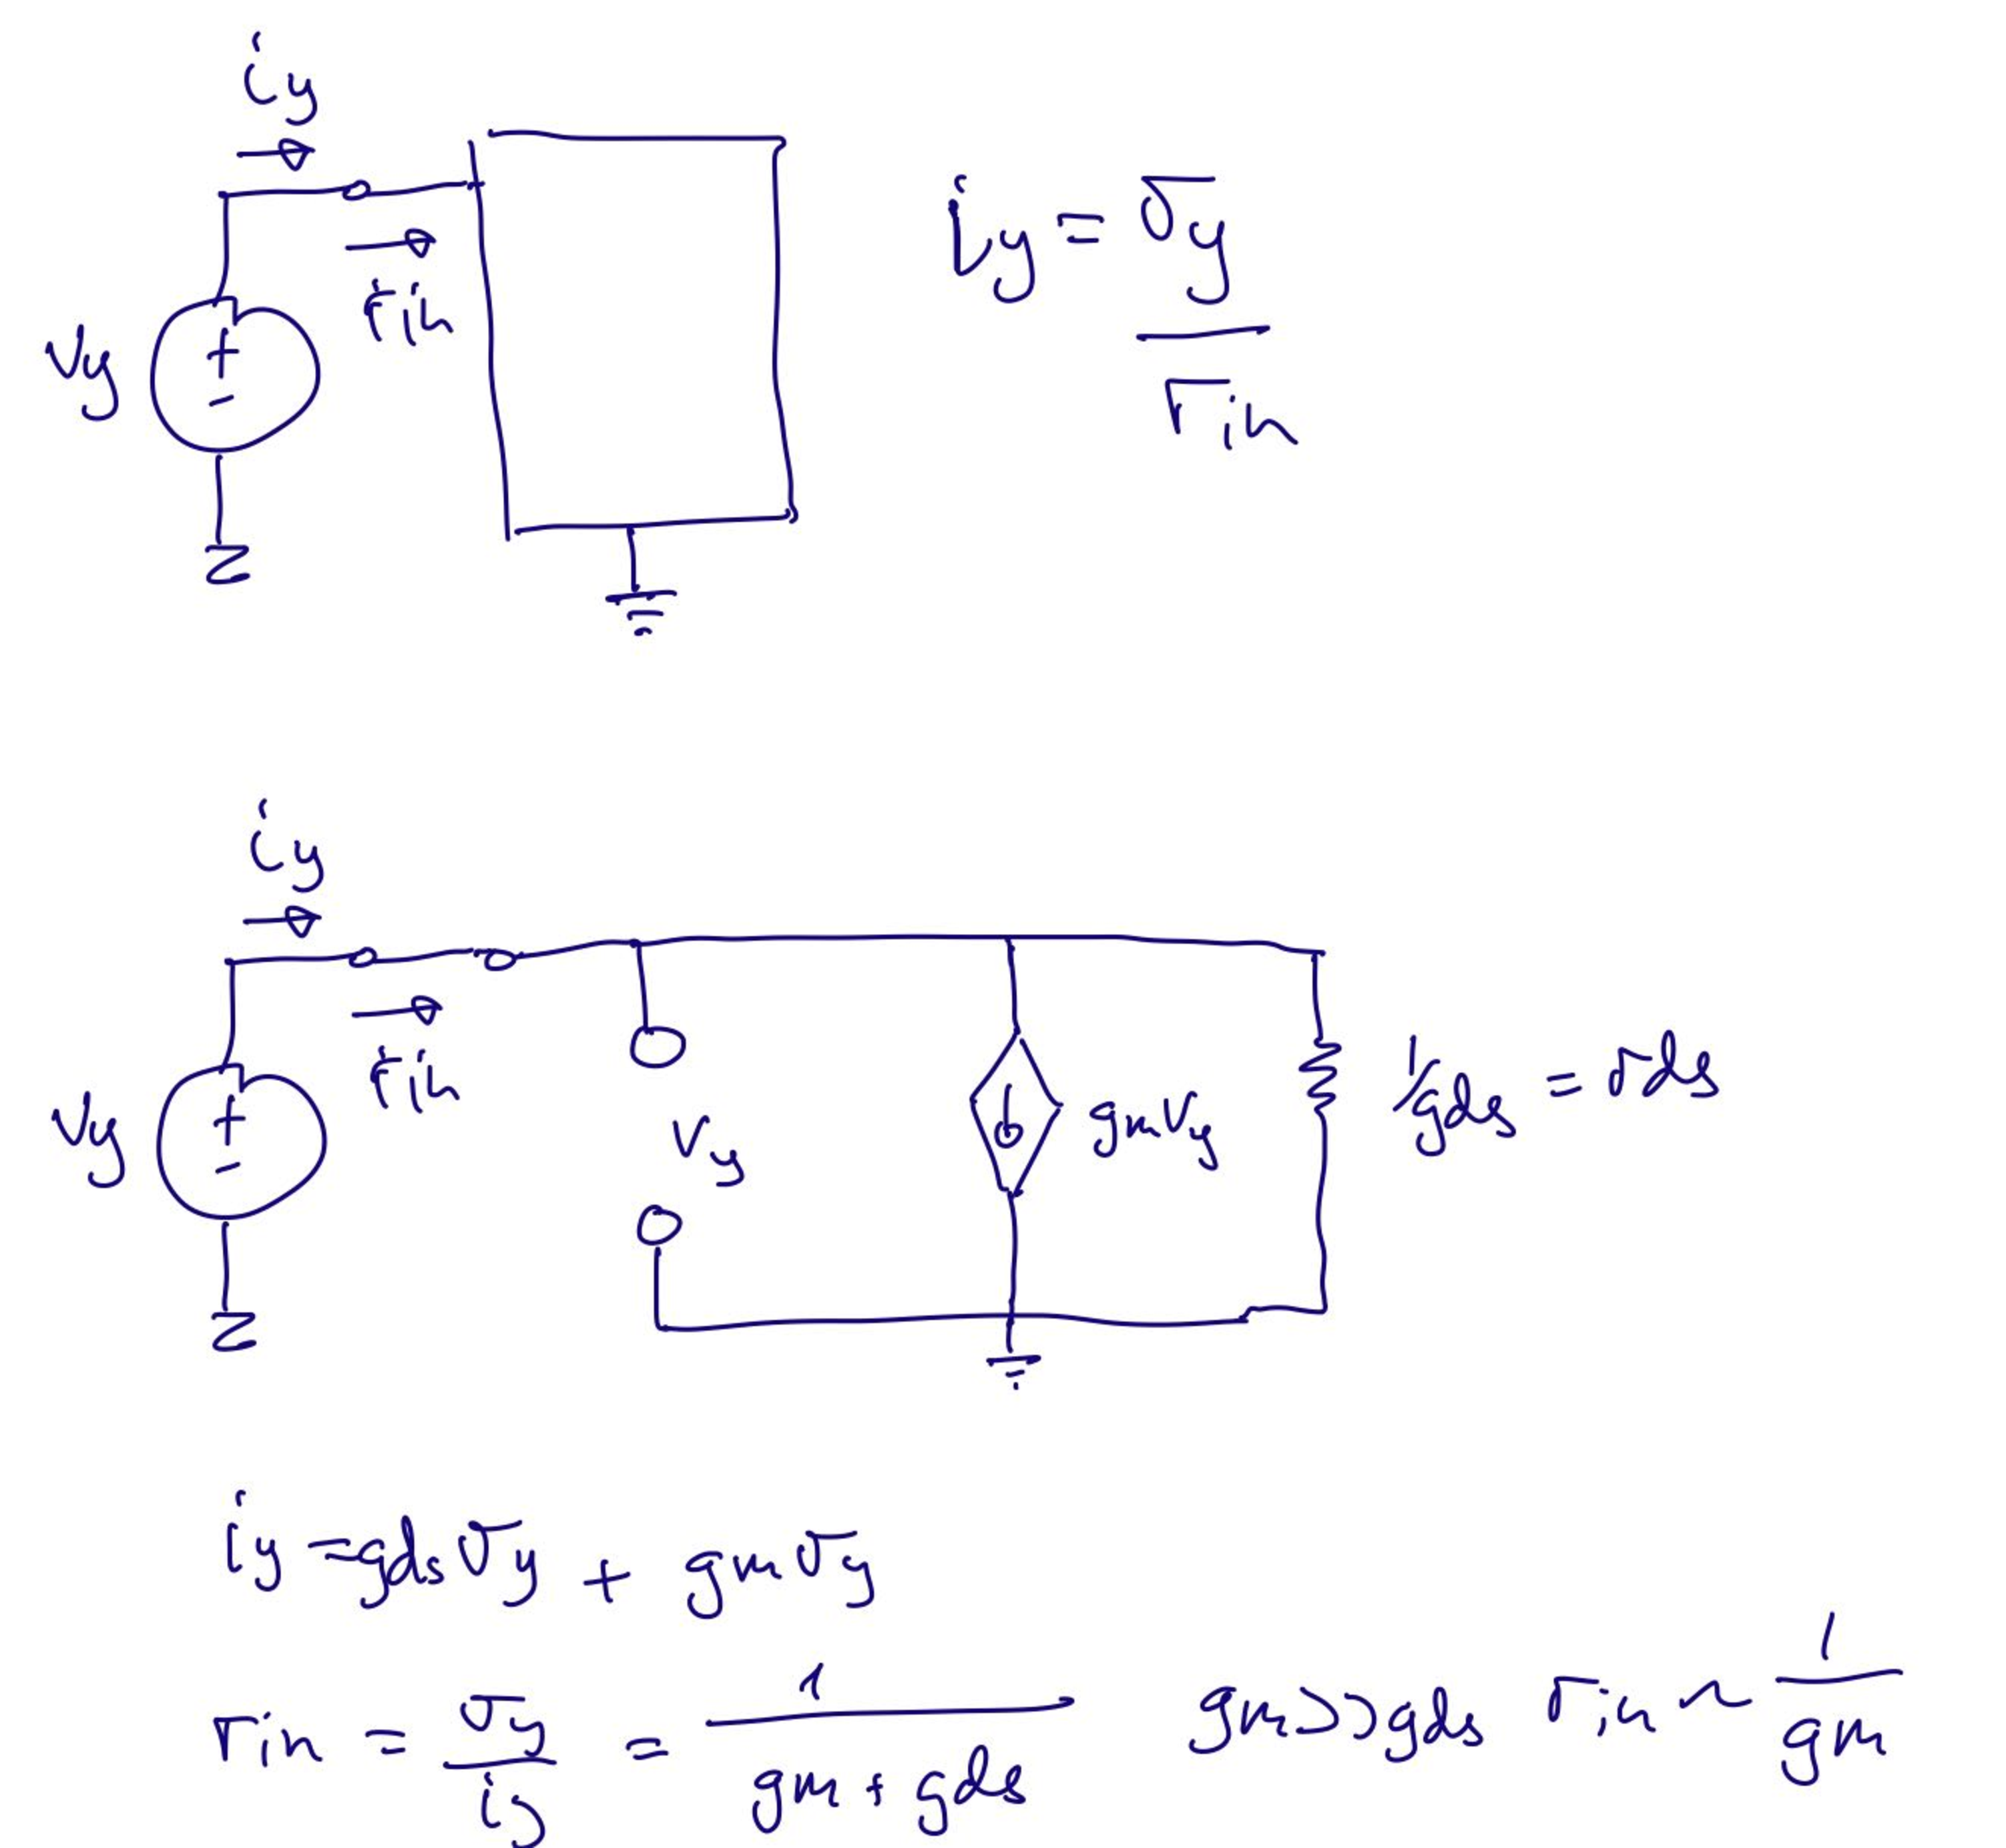 iy
iy = vy / rin
rin
vy
+
-
iy
rin
vy
+
-
vy
gmvy
1/gds = rds
iy = gdsvy + gmvy
rin = vy / iy = 1 / gm + gds gm>>gds rin ~ 1 / gm